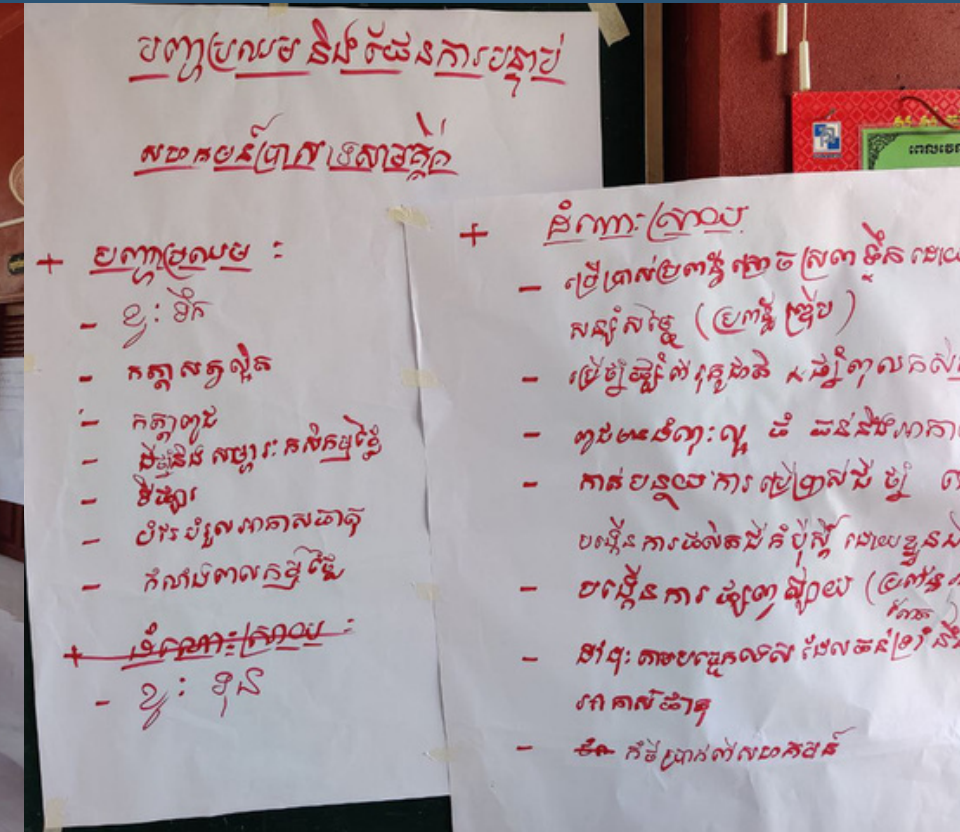 បញ្ហាប្រឈម និង ផែនការបន្ទាប់
សហគមន៍ប្រាសាទសាមគ្គី
+ បញ្ហាប្រឈម :
- ខ្វះទឹក
- កត្តាសត្វល្អិត
- កត្តាពូជ
- ជីថ្នាំនិង សម្ភារៈកសិកម្មថ្លៃ
- ទីផ្សារ
- បំរែបំរួលអាកាសធាតុ
- កំលាំងពលកម្មថ្លៃ
+ ដំណោះស្រាយ :
- ខ្វះ ទុន
+ ដំណោះស្រាយ
- ប្រើប្រាស់ប្រពន្ធ័ ស្រោចស្រពទឹកដោយ
សន្សំសំចៃ (ប្រពន្ធ័ឌ្រីប)
- ប្រើថ្នាំផ្សំពីរុក្ខជាតិ
- ពូជមានដំណុះល្អ ធំ ធន់នឹងអាកា
- កាត់បន្ថយការប្រើប្រាស់ជី ថ្នាំ
បង្កើនការផលិតជីកំប៉ុស្តិ៍ ដោយខ្លួនឯ
- បង្កើនការផ្សព្វផ្សាយ
- ដាំដុះតាមបច្ចេកទេស ដែលធន់ទ្រាំនឹ
អាកាសធាតុ
- កំចីប្រាក់ពីសហគមន៍
ពេលវេ